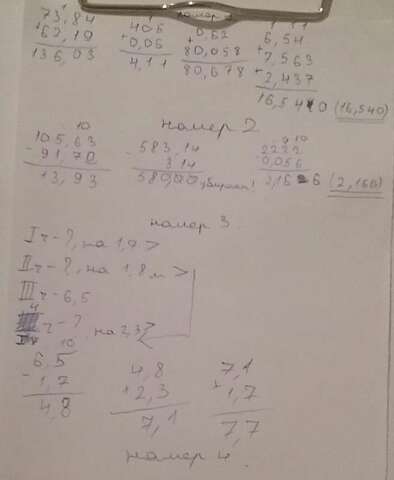 73,84
+62,19
136,03
4,05
+0,06
4,11
+0,62
80,058
80,678
6,54
+7,563
+2,437
16,540 (16,540)
номер 2
10
105,63
- 91,70
13,93
- 583,14
3,14
580,00
9 10
2,222
- 0,056
(2,166)
номер 3
I ч - ?, на 1,7 >
II ч - ?, на 1,8 м >
III ч - 6,5
4
ч - ?, на 2,3 <
10
6,5
- 1,7
4,8
4,8
+ 2,3
7,1
7,1
+ 1,7
7,7
номер 4.